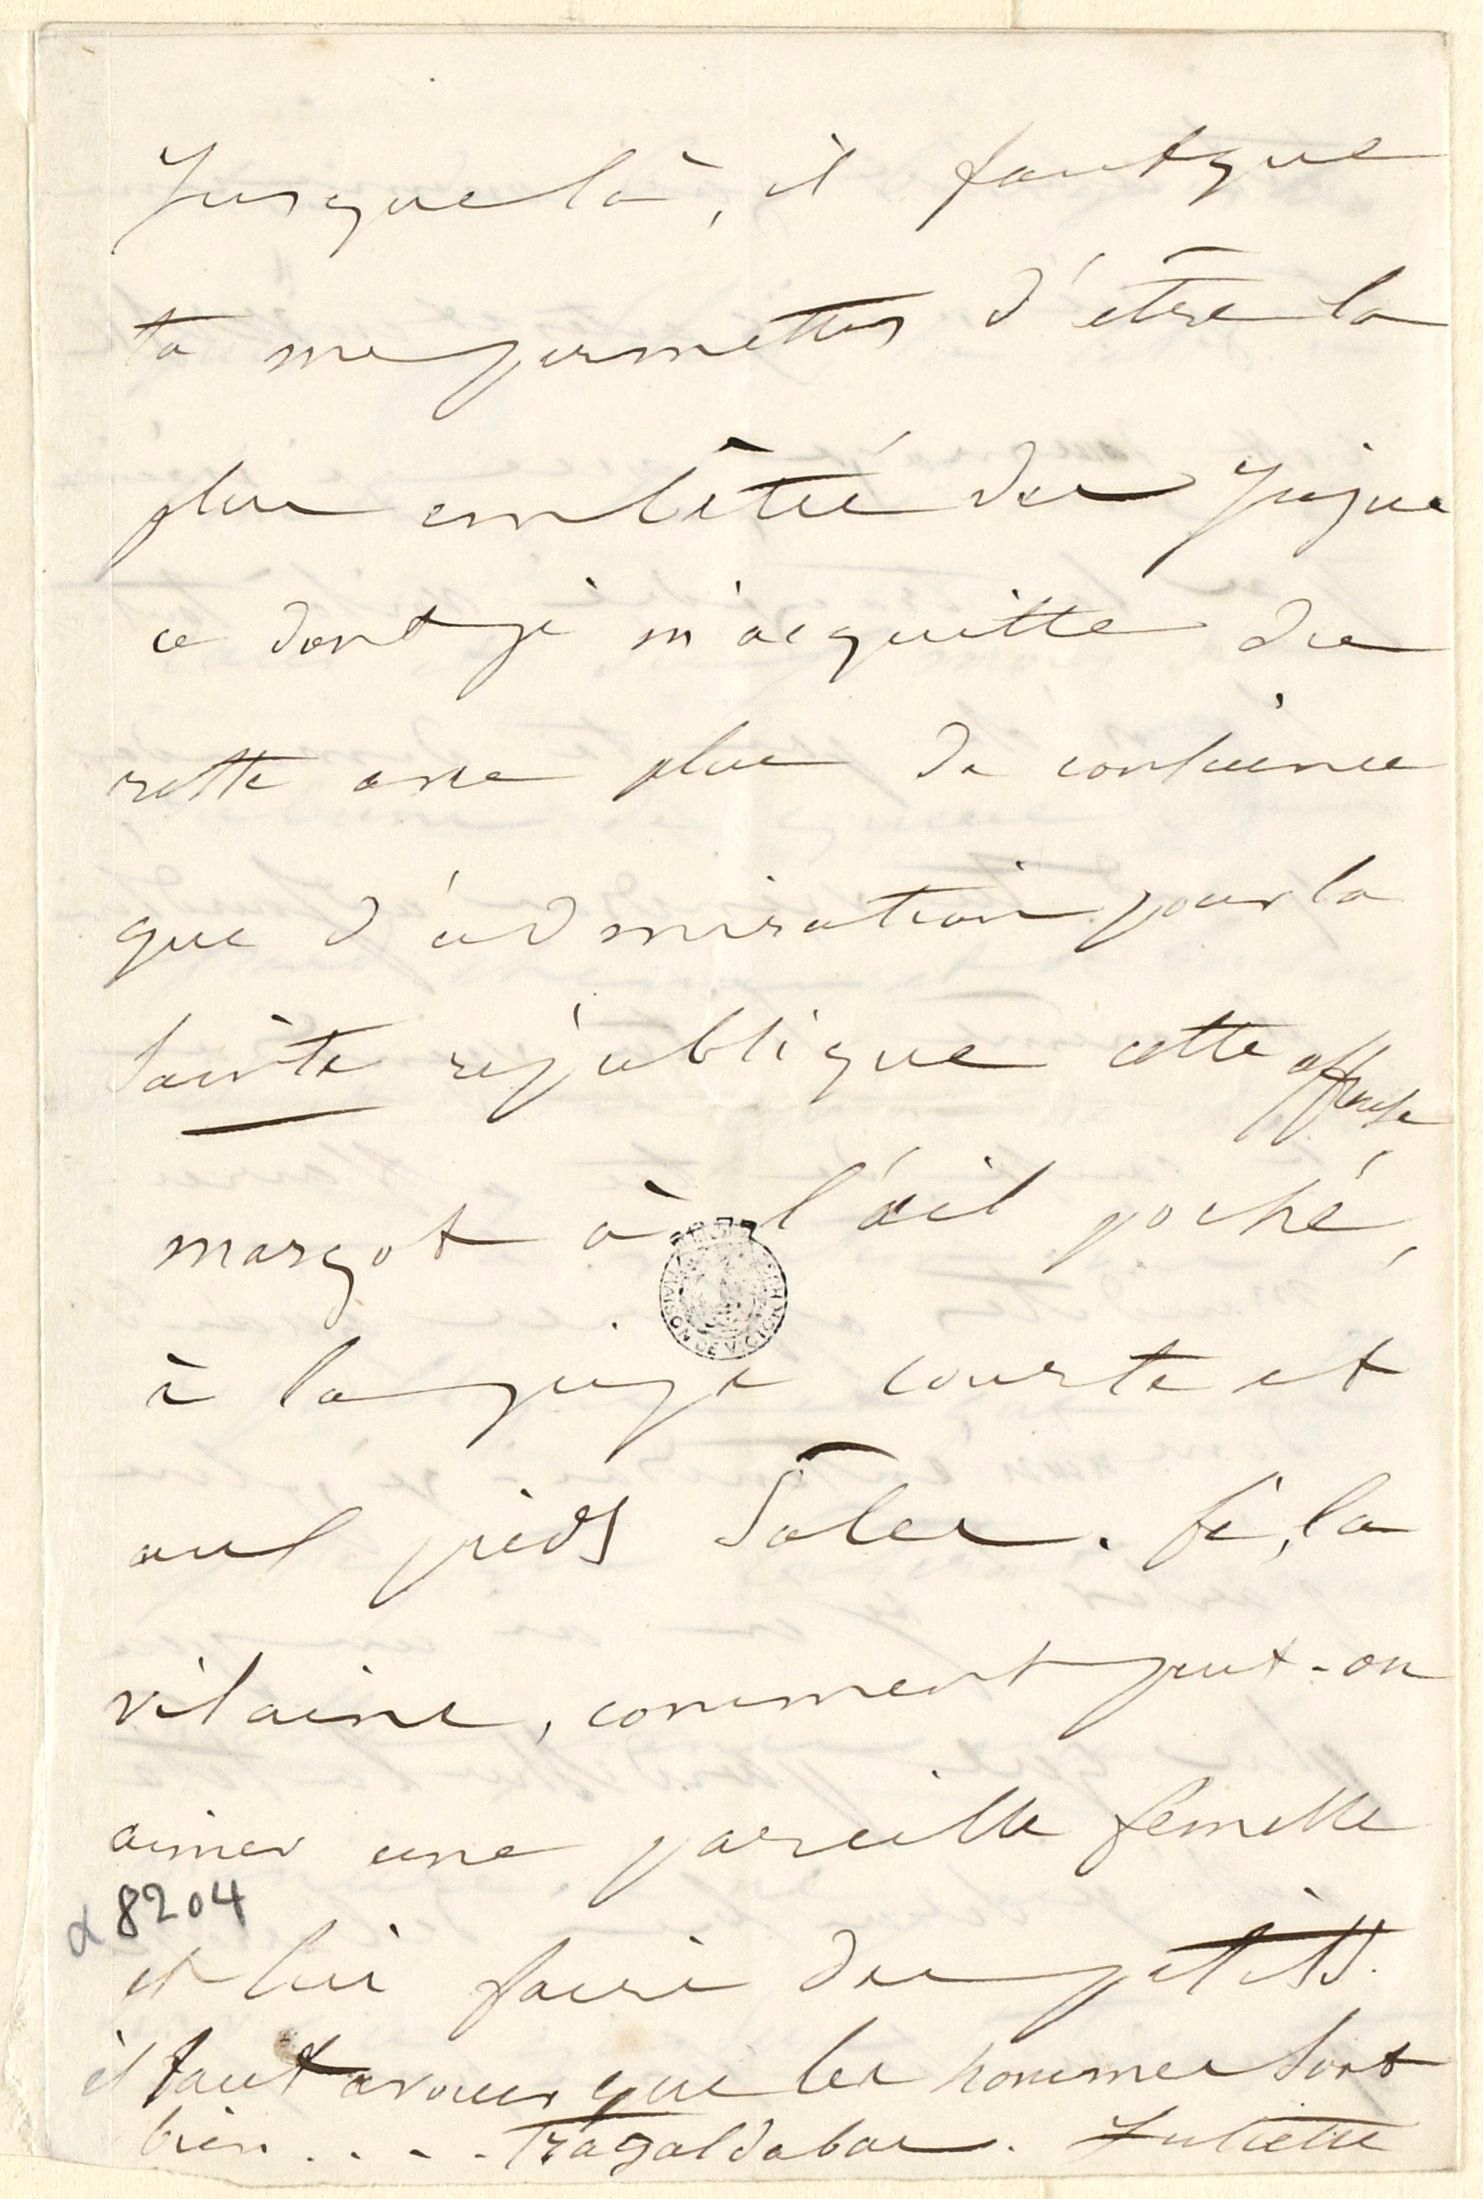 Jusque là, il faut que
tu me permettes d'être la
plus embêtée des Juju
ce dont je m'acquitte du
reste avec plus de conscience
que d'admiration pour la
Sainte république cette affreuse
margot à l'œil poché,
à la jupe courte et
aux pieds sales. fi, la
vilaine, comment peut-on
aimer une pareille femelle
α 8204
et lui faire des petits.
il faut avouer que les hommes sont
bien . . . . Tragaldabas. Juliette
MAISON DE VICTOR HUGO